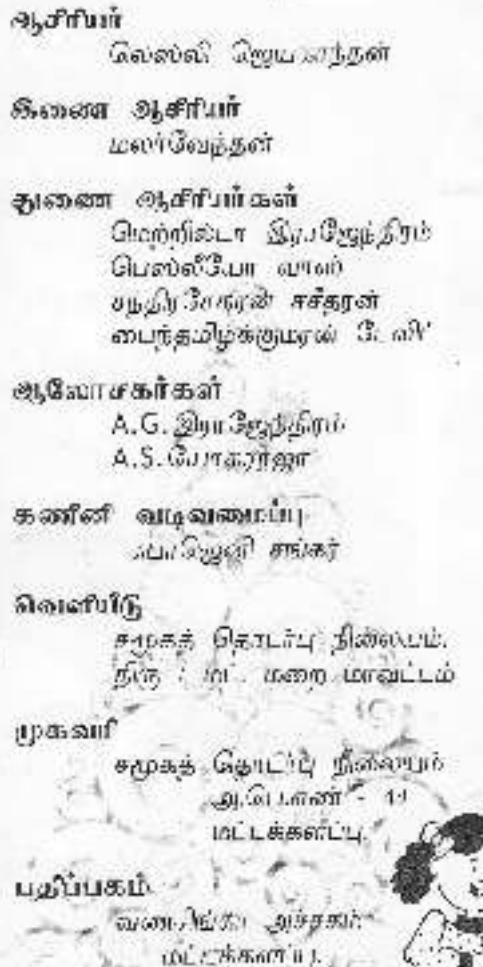 ஆசிரியர்
லெஸ்லி ஜெயகாந்தன்
இணை ஆசிரியர்
மலர்வேந்தன்
துணை ஆசிரியர்கள்
மெற்றில்டா இராஜேந்திரம்
பெஸ்லியோ வாஸ்
சந்திரசேகரன் சசீதரன்
பைந்தமிழ்க்குமரன் டேவிட்
ஆலோசகர்கள்
A.G.இராஜேந்திரம்
A.S.யோகராஜா
கணினி வடிவமைப்பு
சங்கர்
வெளியீடு
சமூகத் தொடர்பு நிலையம்.
திரு மட். மறை மாவட்டம்
முகவரி
சமூகத் தொடர்பு நிலையம்
அ.பெ.எண் - 44
மட்டக்களப்பு.
பதிப்பகம்
வணசிங்கா அச்சகம்
மட்டக்களப்பு.